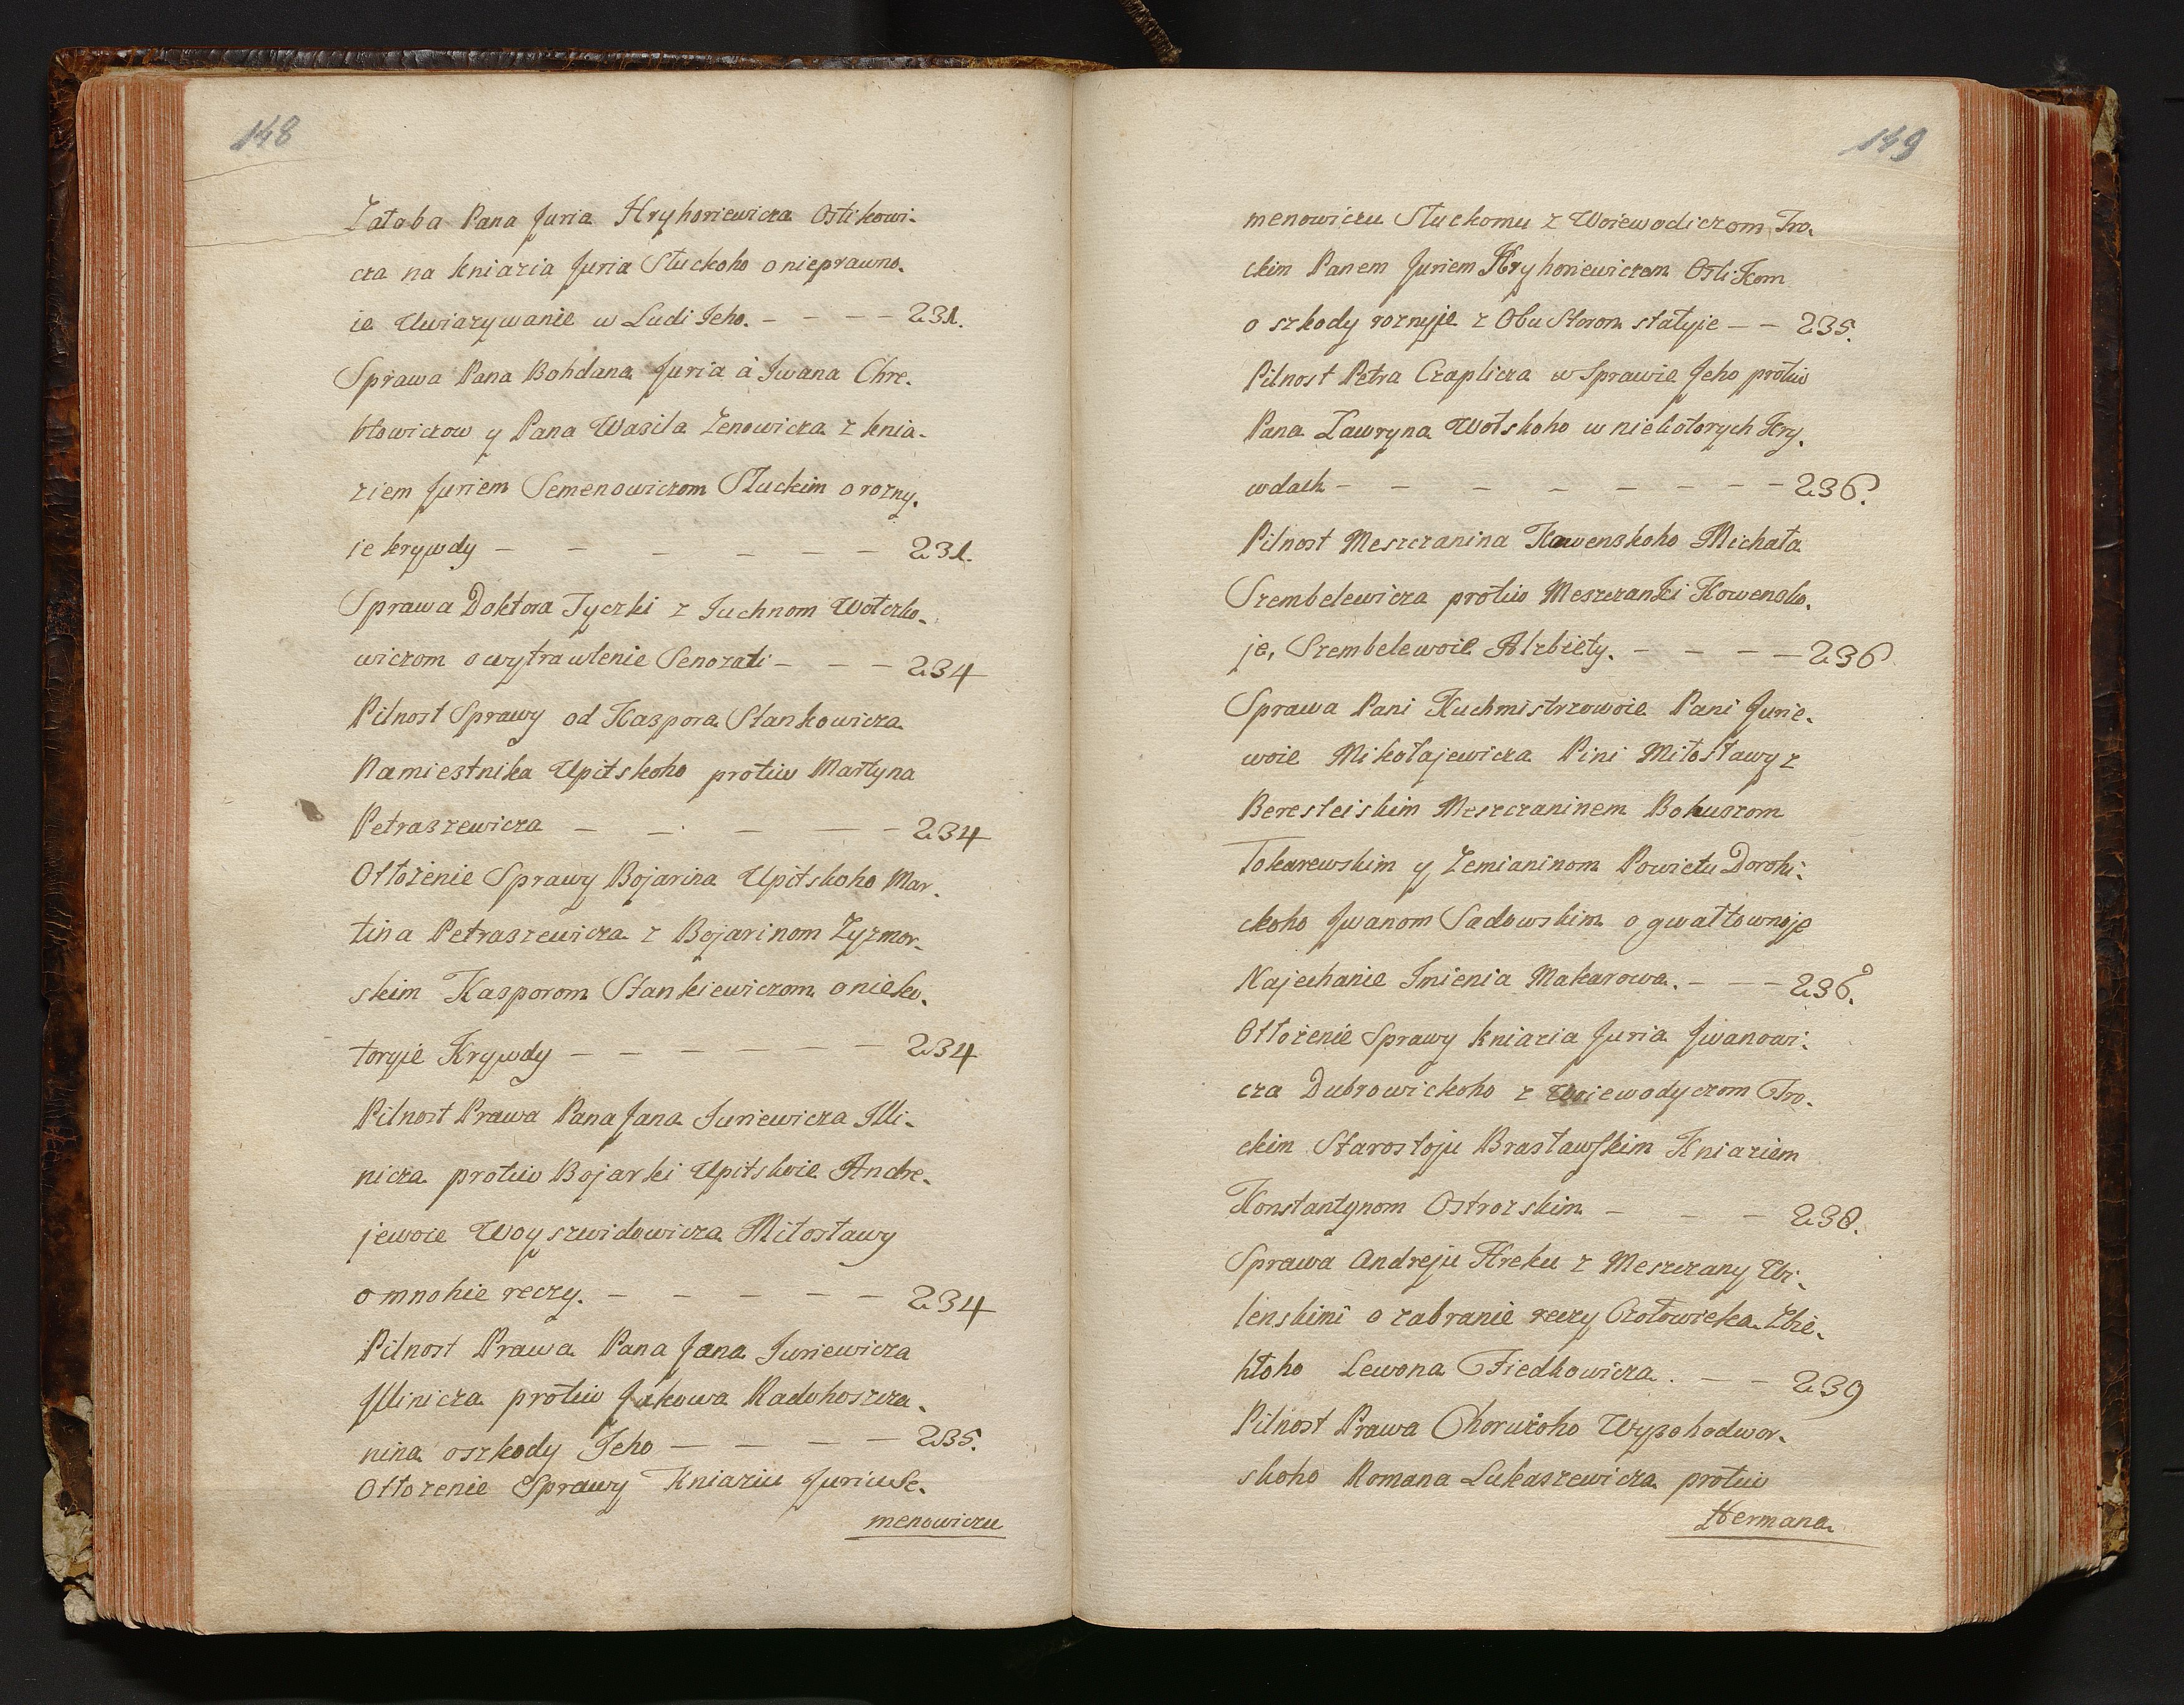 148
Załoba Pana Juria Hryhoriewicza Ostikowi-
cza na kniazia Juria Słuckoho o nieprawno-
ie Uwiazywanie w Ludi Jeho. - - - - 231.
Sprawa Pana Bohdana Juria à Jwana Chre-
btowiczow y Pana Wasila Zenowicza z knia-
ziem Juriem Semenowiczom Słuckim o rozny-
ie krywdy - - - - - - - 231.
Sprawa Doktora Tyczki z Juchnom Wołczko-
wiczom o wytrawlenie Senozati - - - 234
Pilnost Sprawy od Kaspora Stankowicza
Namiestnika Upitskoho protiw Martyna
Petraszewicza - - - - - 234
Otłożenie Sprawy Bojarina Upitskoho Mar-
tina Petraszewicza z Bojarinom Zyzmor-
skim Kasporom Stankiewiczom o nieko-
toryie Krywdy - - - - - - 234
Pilnost Prawa Pana Jana Juriewicza Jlli-
nicza protiw Bojarki Upitskoie Andre-
jewoie Woyszwidowicza Miłosławy
o mnohie reczy. - - - - - 234
Pilnost Prawa Pana Jana Juriewicza
Jllinicza protiw Jakowa Radohoszcza-
nina o szkody Jeho - - - - 235.
Otłozenie Sprawy Kniaziu Juriu Se-
menowiczu
149
menowiczu Słuckomu z Woiewodiczom Tro-
ckim Panem Juriem Hryhoriewiczem Ostikom
o szkody roznyje z Obu Storon stałyje - - 235.
Pilnost Petra Czaplicza w Sprawie Jeho protiw
Pana Ławryna Wołskoho w niekotorych Kry-
wdach - - - - - - - 236.
Pilnost Meszczanina Kowenskoho Michała
Szembelewicza protiw Meszczanki Kowensko-
je, Szembelewoie Alzbiety. - - - - 236
Sprawa Pani Kuchmistrzowoie Pani Jurie-
woie Mikołajewicza Pini Miłosławy z
Beresteiskim Meszczaninem Bohuszom
Tokarewskim y Zemianinom Powietu Dorohi-
ckoho Jwanom Sadowskim o gwałtownoje
Najechanie Jmienia Makarowa. - - - 236.
Otłożenie Sprawy kniazia Juria Jwanowi-
cza Dubrowickoho z Woiewodyczom Tro-
ckim Starostoju Brasławskim Kniaziem
Konstantynom Ostrozskim - - - 238.
Sprawa Andreju Hreku z Meszczany Wi-
lenskimi o zabranie reczy Czołowieka Zbie-
hłoho Lewona Fiedkowicza. - - 239
Pilnost Prawa Chorużoho Wyszohodwor-
skoho Romana Lukaszewicza protiw
Hermana